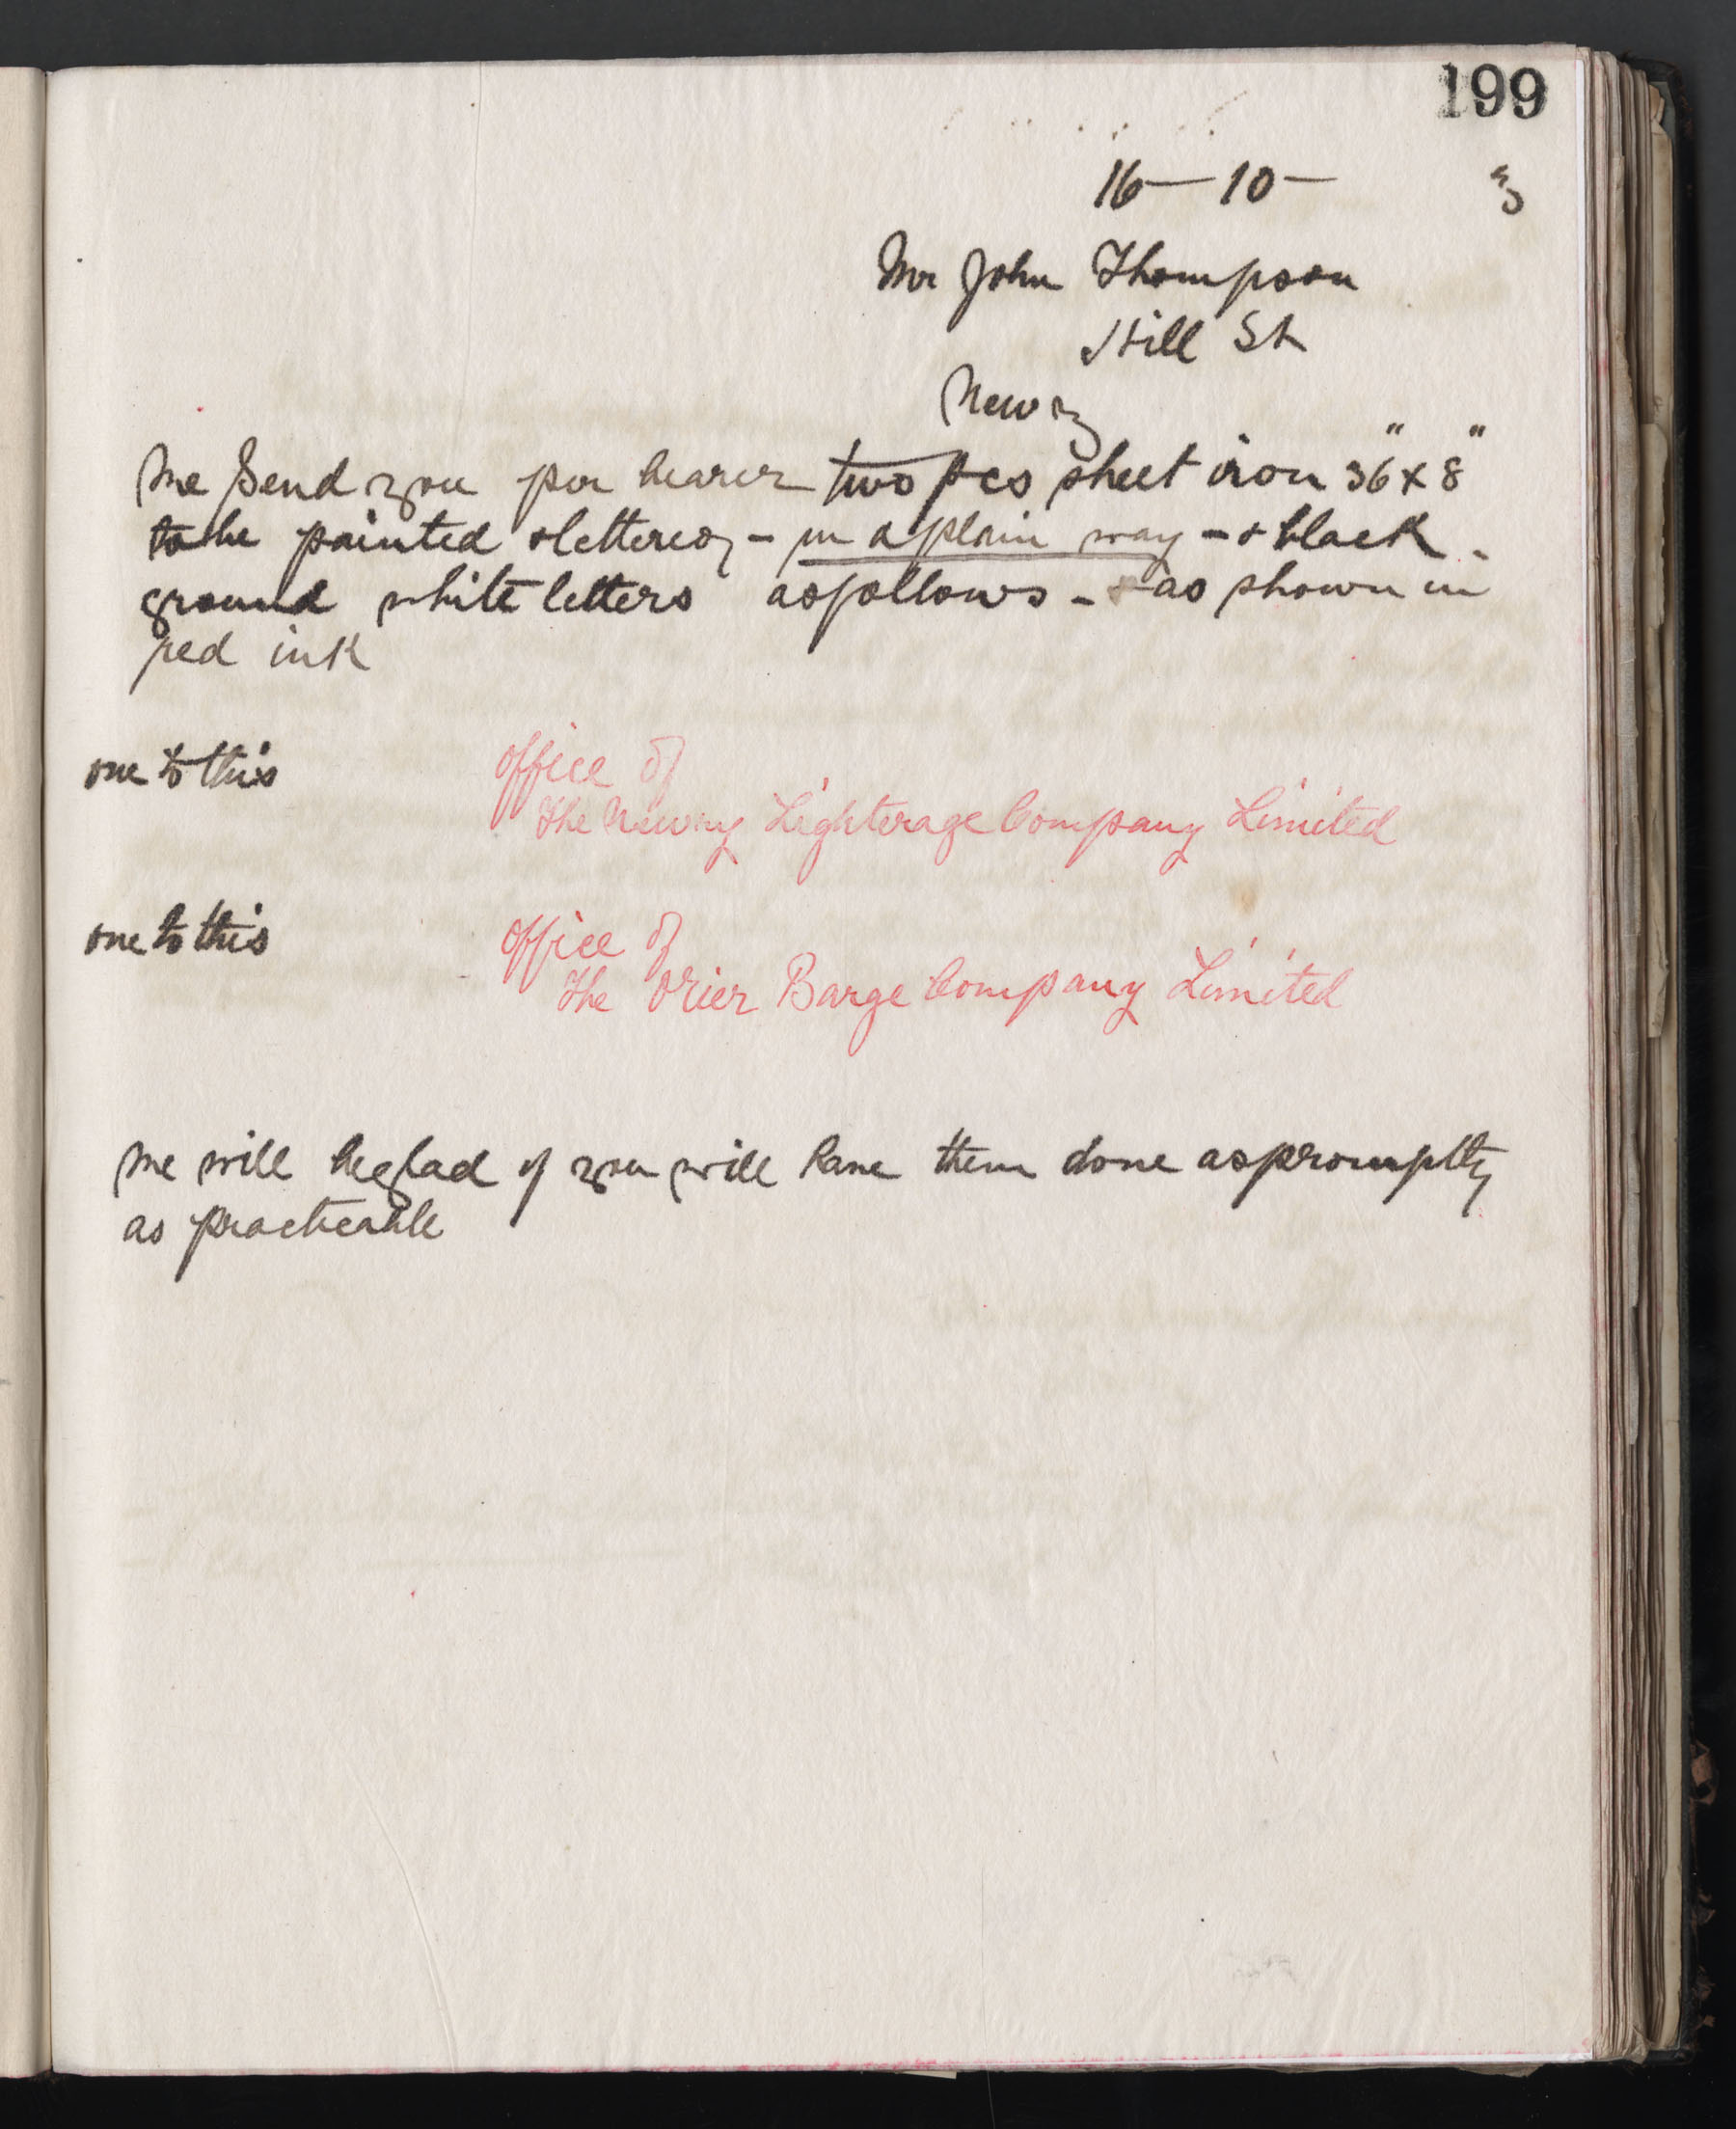 199
16 — 10 — 3
Mr John Thompson
Hill St
Newry
We Send you per bearer two pcs sheet iron 36" x 8"
to be painted & lettered - in a plain way - & black
ground white letters as follows - & as shown in
red ink
one to this office of
The Newry Lighterage Company Limited
one to this office of
The Orier Barge Company Limited
We will be glad if you will have them done as promptly
as practicable